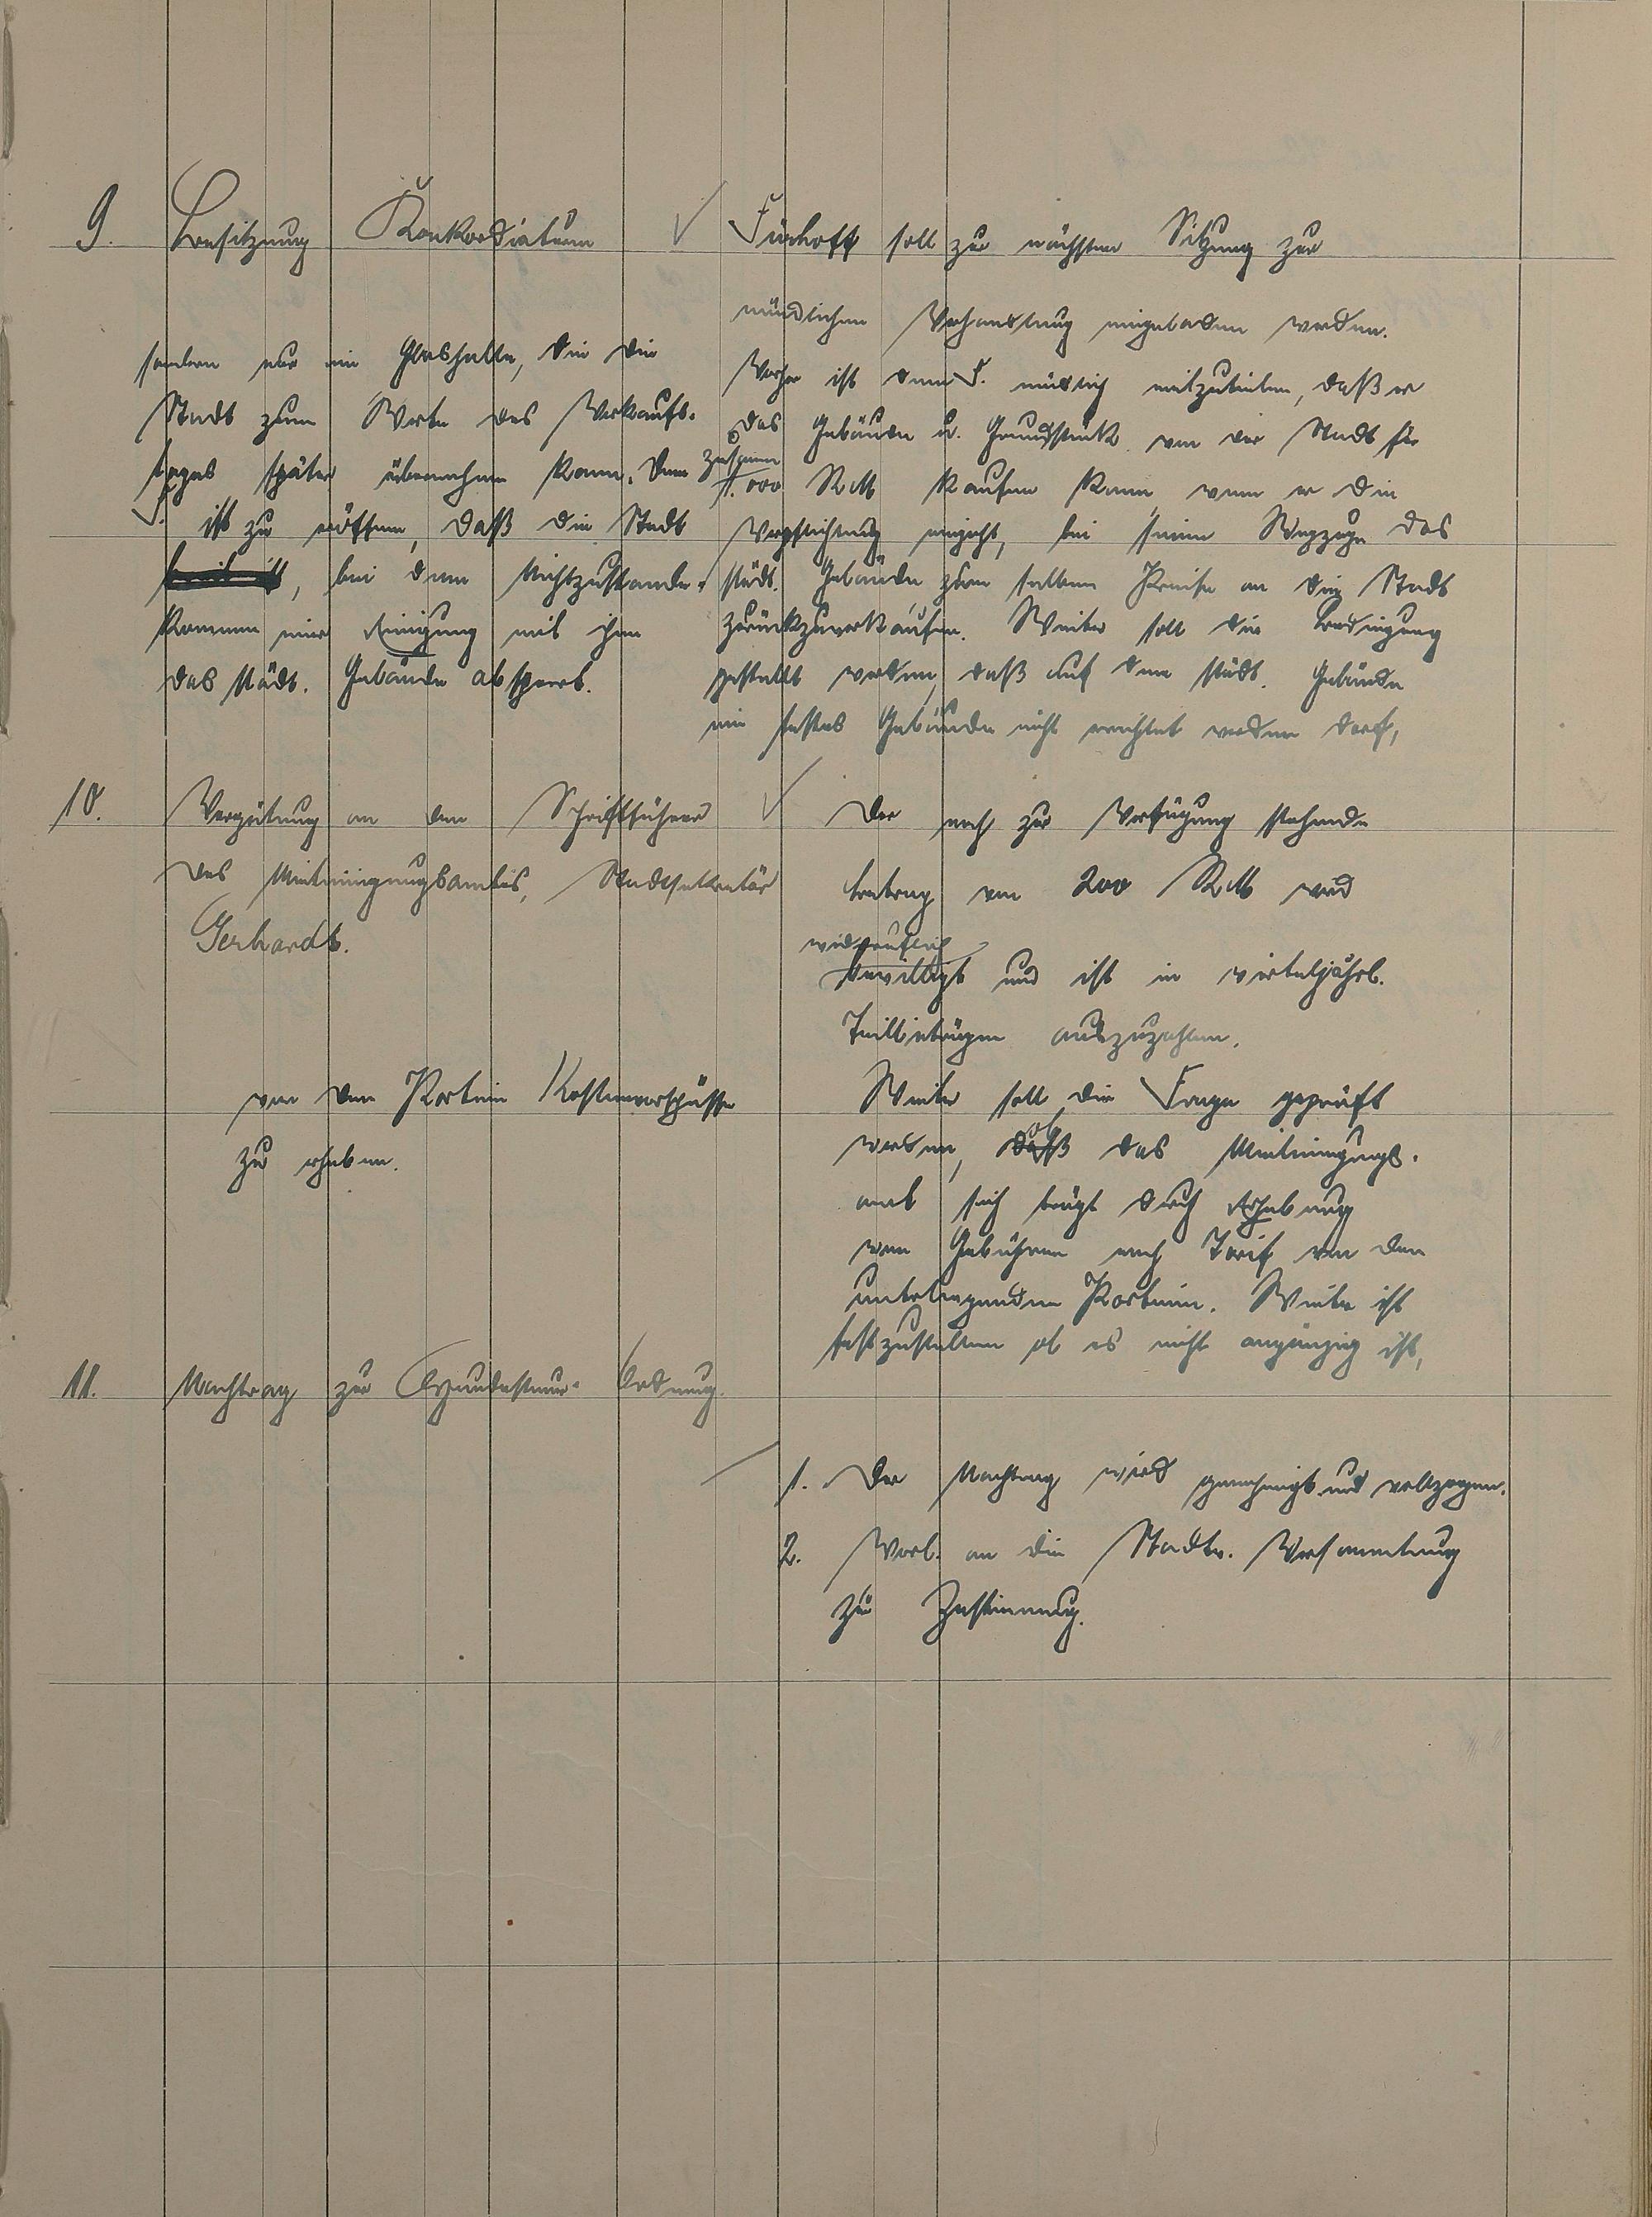 9. Besitzung Konkordiaturm
Fürhoff soll zur nächsten Sitzung zur
mündlichen Verhandlung eingeladen werden.
Vorher ist dem F. mitzuteilen, daß er
das Gebäude u. Grundstück von der Stadt für
zusammen
1.000 RM kaufen kann, wenn er die
Verpflichtung eingeht, bei seinem Wegzuge das
städt. Gebäude zum selben Preise an die Stadt
zurückzuverkaufen. Weiter soll die Bedingung
gestellt werden, daß auf dem städt. Gebäude
ein festes Gebäude nicht errichtet werden darf,
sondern nur eine Glashalle, die die
Stadt zum Werte des Verkaufs-
tages später übernehmen kann. Dem
F. ist zu eröffnen, daß die Stadt
, bei dem Nichtzustande-
kommen einer Einigung mit ihm
das städt. Gebäude absperrt.
10. Vergütung an den Schriftführer
des Mieteinigungsamtes, Stadtsekretär
Gerhardt.
Der noch zur Verfügung stehende
Betrag von 200 RM wird
widerruflich
bewilligt und ist in vierteljährl.
Teilbeträgen auszuzahlen.
Weiter soll die Frage geprüft
werden, ob das Mieteinigungs-
amt sich trägt durch Erhebung
von Gebühren nach Tarif von den
unterliegenden Parteien. Weiter ist
festzustellen ob es nicht angängig ist,
von den Parteien Kostenvorschüsse
zu erheben.
11. Nachtrag zur Hundesteuer-Ordnung.
1. Der Nachtrag wird genehmigt und vollzogen.
2. Vorl. an die Stadtv. Versammlung
zur Zustimmung.